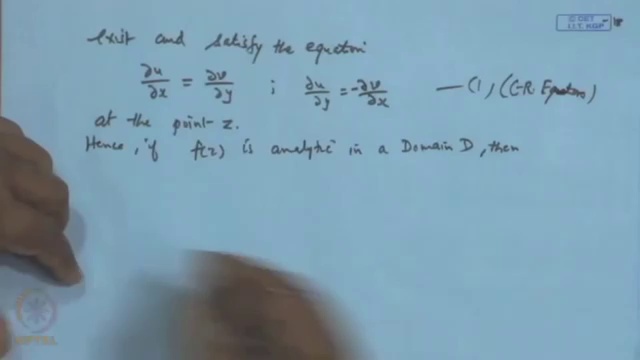 © CET
I.I.T. KGP
exist and satisfy the equation
∂u/∂x = ∂v/∂y ; ∂u/∂y = -∂v/∂x — (1) (C-R. Equations)
at the point z.
Hence, if f(z) is analytic in a Domain D, then
NPTEL